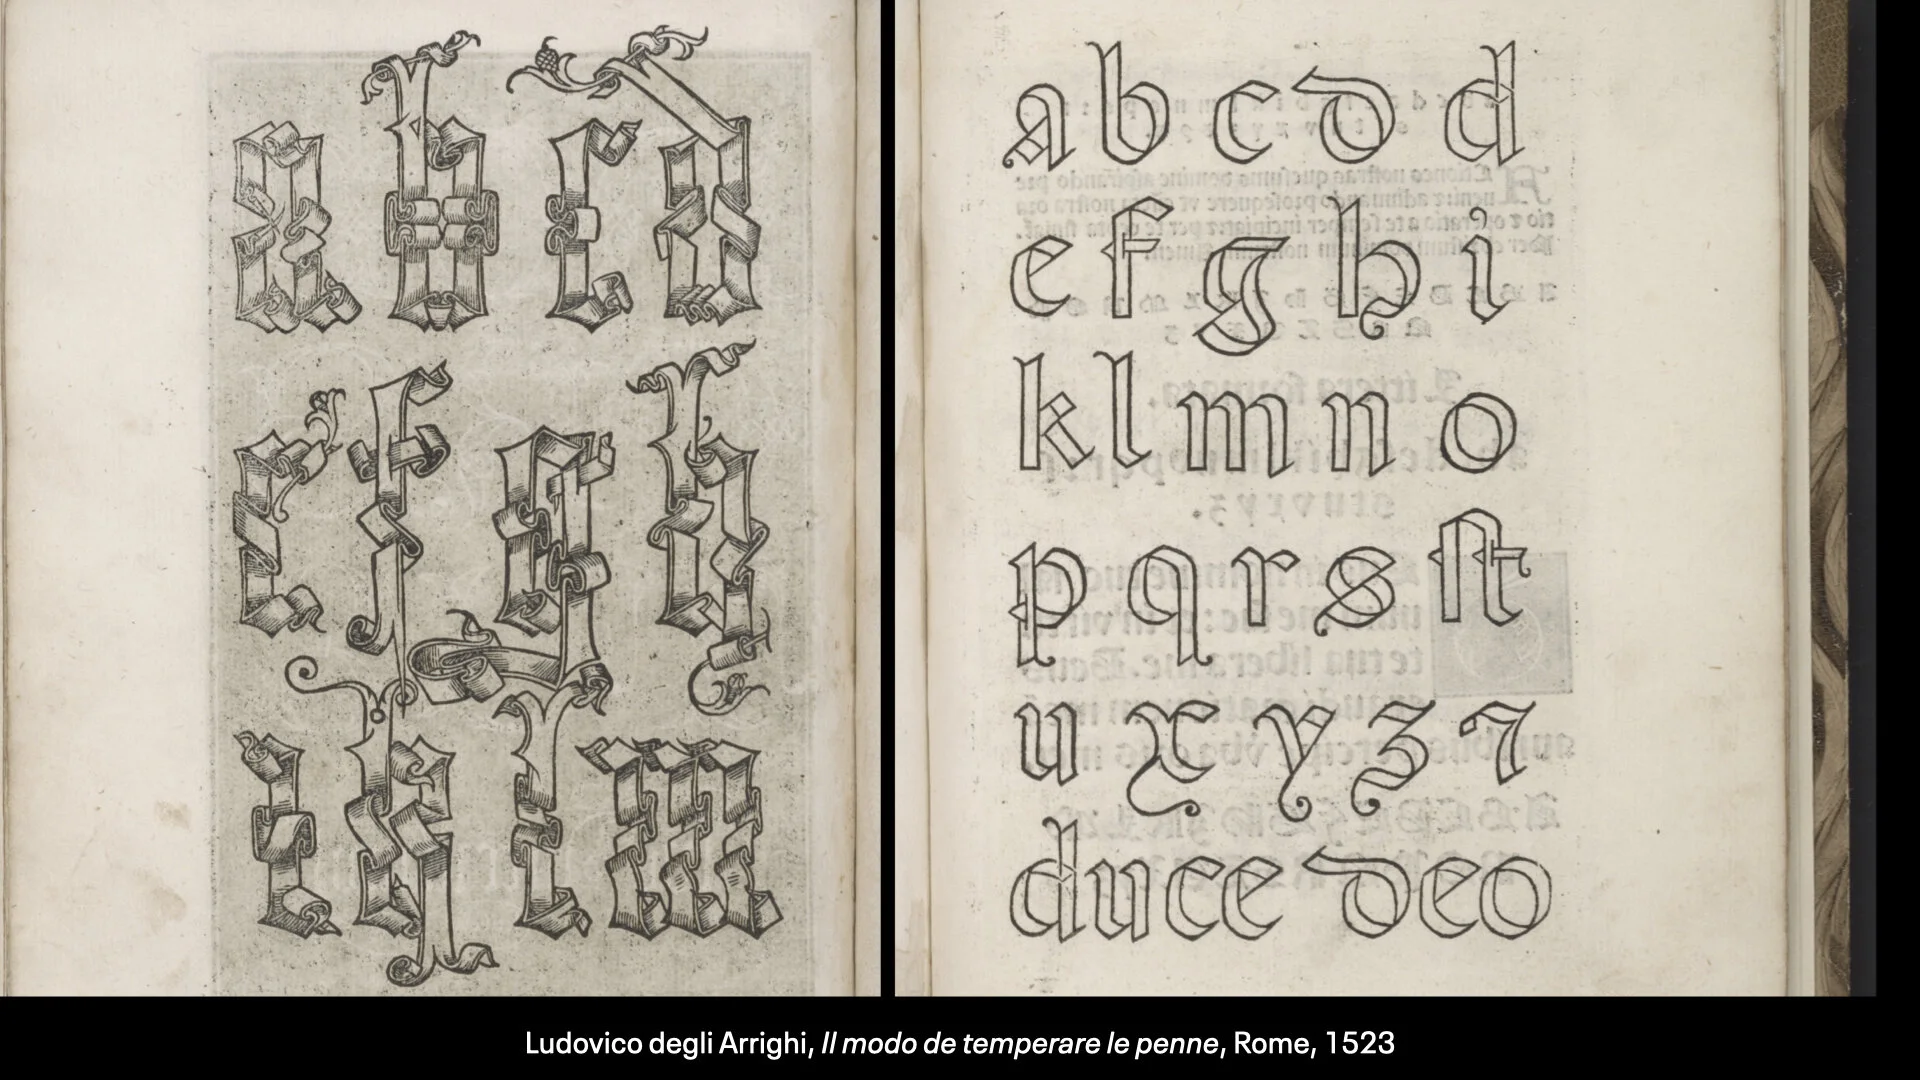 a b c d
e f g h
i k l m
a b c d d
e f g h i
k l m n o
p q r s st
u x y z ⁊
duce deo
Ludovico degli Arrighi, Il modo de temperare le penne, Rome, 1523